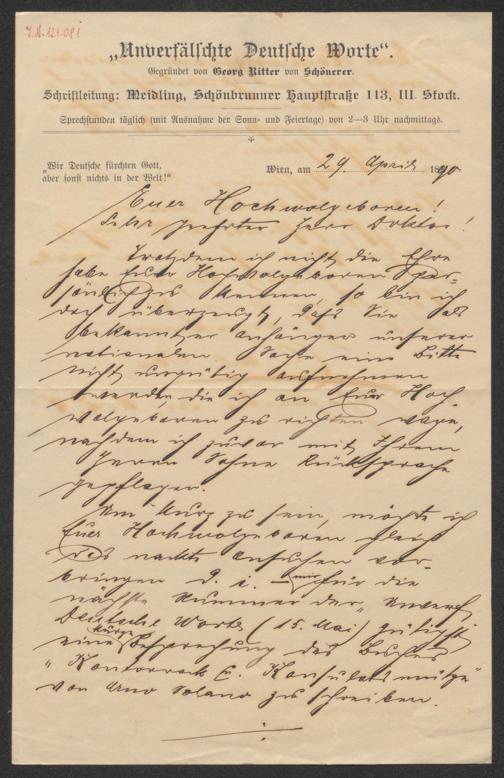 J.N. 124.081
„Unverfälschte Deutsche Worte“.
Gegründet von Georg Ritter von Schönerer.
Schriftleitung: Meidling, Schönbrunner Hauptstraße 113, III. Stock.
Sprechstunden täglich (mit Ausnahme der Sonn- und Feiertage) von 2—3 Uhr nachmittags.
„Wir Deutsche fürchten Gott,
aber sonst nichts in der Welt!“
Wien, am 29. April 1890
Euer Hochwolgeboren!
Sehr geehrter Herr Doktor!
Trotzdem ich nicht die Ehre
habe Euer Hochwolgeboren per-
sönlich zu kennen, so bin ich
doch überzeugt, daß Sie als
bekannter Anhänger unserer
nationalen Sache eine Bitte
nicht ungütig aufnehmen
werden, die ich an Euer Hoch-
wolgeboren zu richten wage,
nachdem ich zuvor mit Ihrem
Herrn Sohne Rücksprache
gepflogen.
Um kurz zu sein, möchte ich
Euer Hochwolgeboren gleich
das nackte Ansuchen vor-
bringen d. i. mir für die
nächste Nummer der „Unverf.
Deutsche Worte (15. Mai) gütigst
eine kurze Besprechung des Buches
„Kontorrock & Konsulatsmütze“
von Arno Solano zu schreiben.